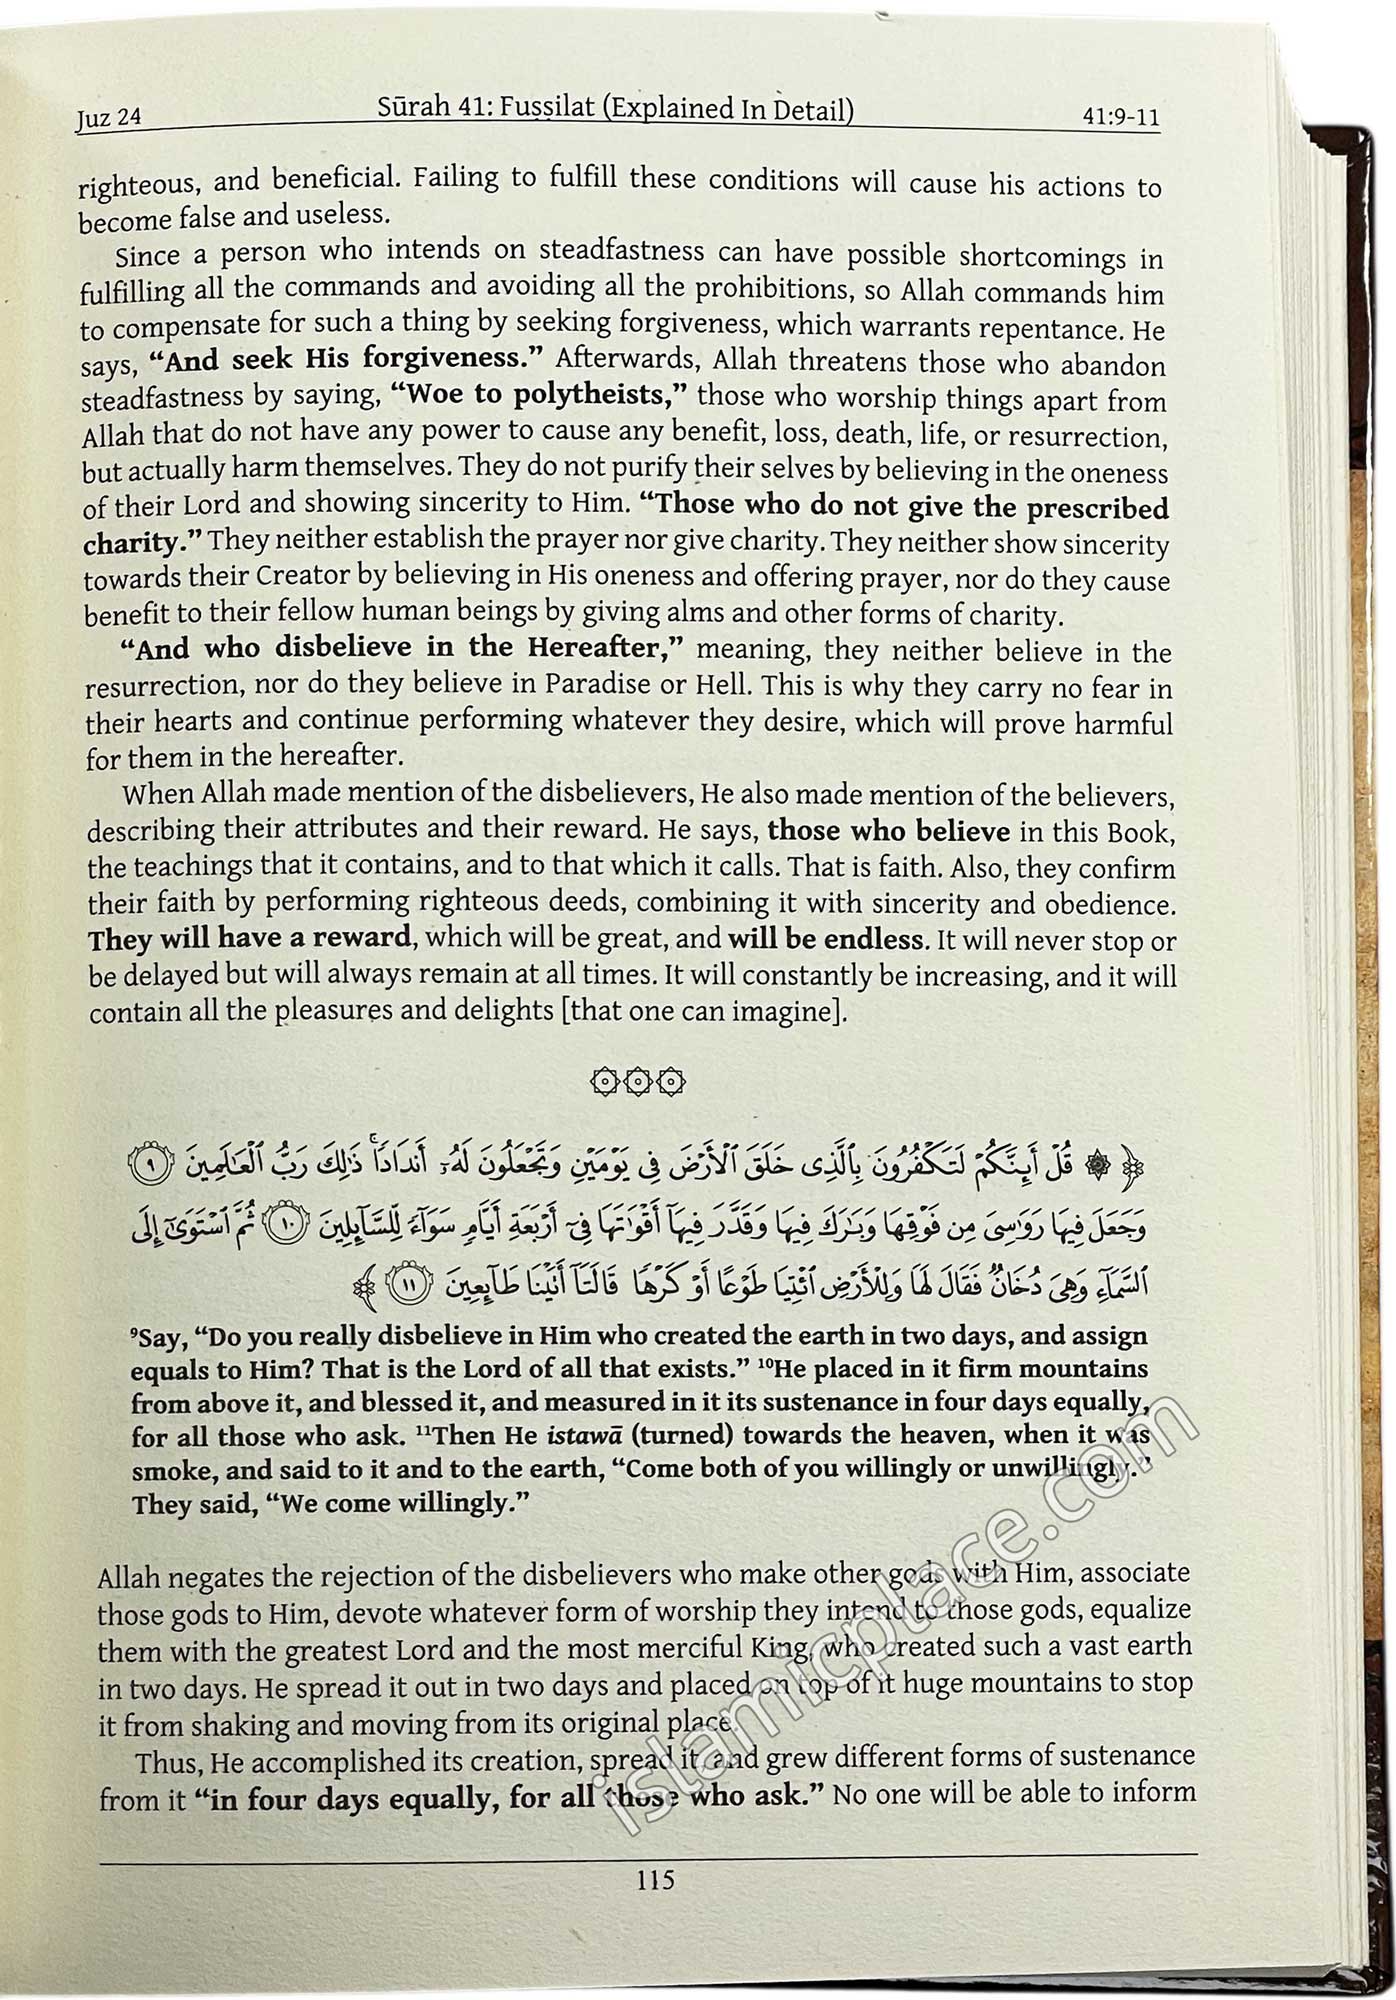 Juz 24
Sūrah 41: Fuṣṣilat (Explained In Detail)
41:9-11
righteous, and beneficial. Failing to fulfill these conditions will cause his actions to
become false and useless.
Since a person who intends on steadfastness can have possible shortcomings in
fulfilling all the commands and avoiding all the prohibitions, so Allah commands him
to compensate for such a thing by seeking forgiveness, which warrants repentance. He
says, “And seek His forgiveness.” Afterwards, Allah threatens those who abandon
steadfastness by saying, “Woe to polytheists,” those who worship things apart from
Allah that do not have any power to cause any benefit, loss, death, life, or resurrection,
but actually harm themselves. They do not purify their selves by believing in the oneness
of their Lord and showing sincerity to Him. “Those who do not give the prescribed
charity.” They neither establish the prayer nor give charity. They neither show sincerity
towards their Creator by believing in His oneness and offering prayer, nor do they cause
benefit to their fellow human beings by giving alms and other forms of charity.
“And who disbelieve in the Hereafter,” meaning, they neither believe in the
resurrection, nor do they believe in Paradise or Hell. This is why they carry no fear in
their hearts and continue performing whatever they desire, which will prove harmful
for them in the hereafter.
When Allah made mention of the disbelievers, He also made mention of the believers,
describing their attributes and their reward. He says, those who believe in this Book,
the teachings that it contains, and to that which it calls. That is faith. Also, they confirm
their faith by performing righteous deeds, combining it with sincerity and obedience.
They will have a reward, which will be great, and will be endless. It will never stop or
be delayed but will always remain at all times. It will constantly be increasing, and it will
contain all the pleasures and delights [that one can imagine].
﴿ ۞ قُلْ أَئِنَّكُمْ لَتَكْفُرُونَ بِٱلَّذِى خَلَقَ ٱلْأَرْضَ فِى يَوْمَيْنِ وَتَجْعَلُونَ لَهُۥٓ أَندَادًا ۚ ذَٰلِكَ رَبُّ ٱلْعَـٰلَمِينَ ٩
وَجَعَلَ فِيهَا رَوَٰسِىَ مِن فَوْقِهَا وَبَـٰرَكَ فِيهَا وَقَدَّرَ فِيهَآ أَقْوَٰتَهَا فِىٓ أَرْبَعَةِ أَيَّامٍ سَوَآءً لِّلسَّآئِلِينَ ١٠ ثُمَّ ٱسْتَوَىٰٓ إِلَى
ٱلسَّمَآءِ وَهِىَ دُخَانٌ فَقَالَ لَهَا وَلِلْأَرْضِ ٱئْتِيَا طَوْعًا أَوْ كَرْهًا قَالَتَآ أَتَيْنَا طَآئِعِينَ ١١ ﴾
⁹Say, “Do you really disbelieve in Him who created the earth in two days, and assign
equals to Him? That is the Lord of all that exists.” ¹⁰He placed in it firm mountains
from above it, and blessed it, and measured in it its sustenance in four days equally,
for all those who ask. ¹¹Then He istawā (turned) towards the heaven, when it was
smoke, and said to it and to the earth, “Come both of you willingly or unwillingly.”
They said, “We come willingly.”
Allah negates the rejection of the disbelievers who make other gods with Him, associate
those gods to Him, devote whatever form of worship they intend to those gods, equalize
them with the greatest Lord and the most merciful King, who created such a vast earth
in two days. He spread it out in two days and placed on top of it huge mountains to stop
it from shaking and moving from its original place.
Thus, He accomplished its creation, spread it, and grew different forms of sustenance
from it “in four days equally, for all those who ask.” No one will be able to inform
115
islamicplace.com